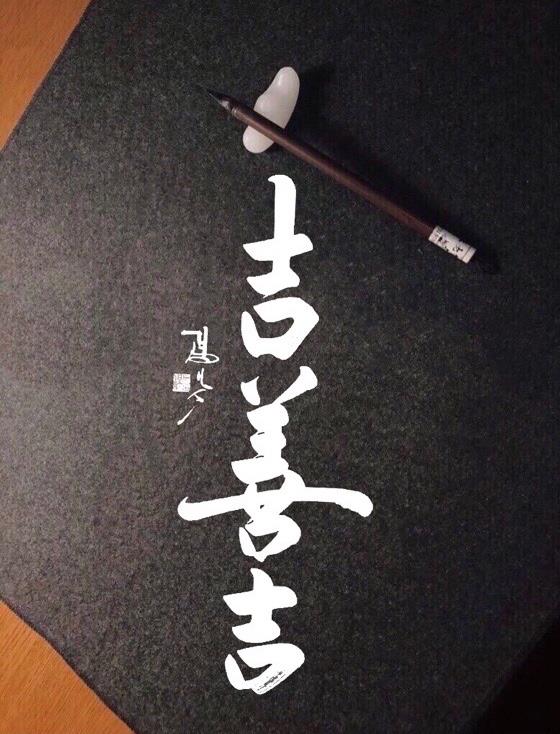 吉善吉